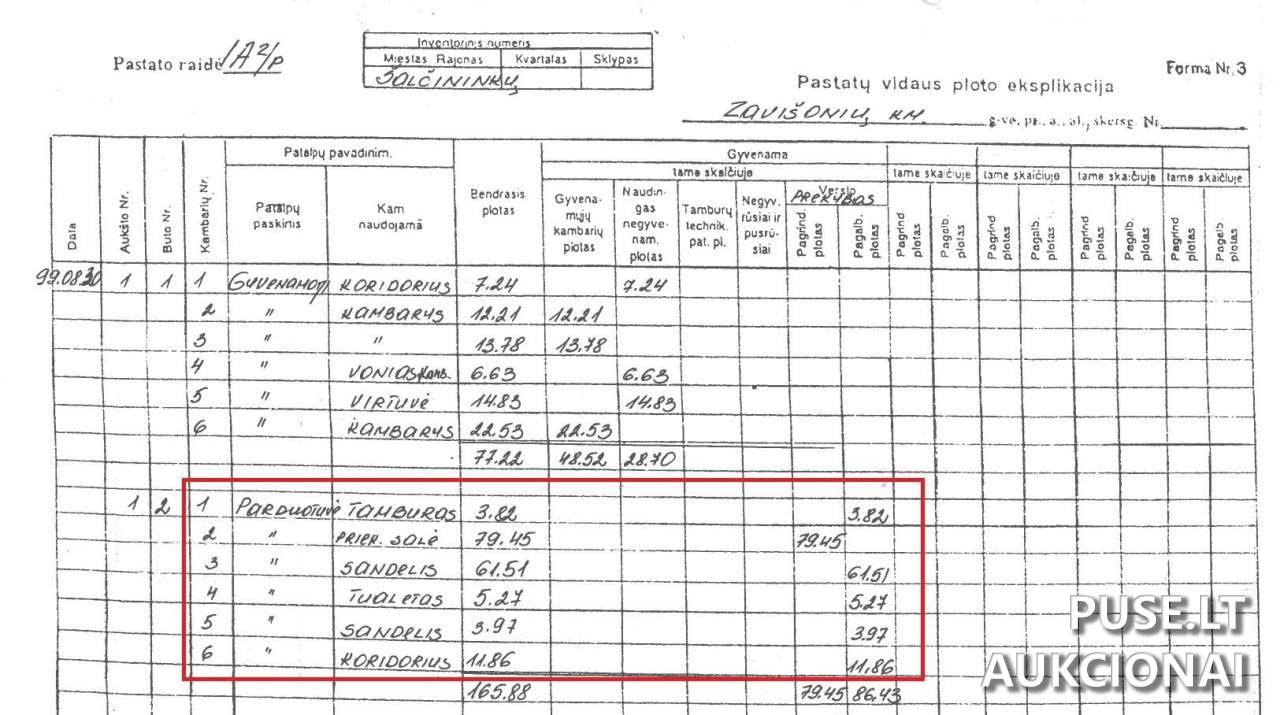 Pastato raidė 1A2/p
Inventorinis numeris
Miestas Rajonas Kvartalas Sklypas
ŠALČININKŲ
Forma Nr. 3
Pastatų vidaus ploto eksplikacija
ZAVIŠONIŲ KM. g-vė, pr., a., al., skersg. Nr.
Data Aukšto Nr. Buto Nr. Kambarių Nr. Patalpų pavadinim. Patalpų paskirtis Kam naudojamą Bendrasis plotas
Gyvenama
tame skaičiuje
Gyvenamųjų kambarių plotas Naudingas negyvenam. plotas Tamburų technik. pat. pl. Negyv. rūsiai ir pusrūsiai
Verslo PREKYBOS
Pagrind plotas Pagalb. plotas
tame skaičiuje tame skaičiuje tame skaičiuje tame skaičiuje
Pagrind plotas Pagalb. plotas Pagrind plotas Pagalb. plotas Pagrind plotas Pagalb. plotas Pagrind plotas Pagalb plotas
99.08.30 1 1 1 GYVENAMOJI KORIDORIUS 7.24 7.24
2 " KAMBARYS 12.21 12.21
3 " " 13.78 13.78
4 " VONIAS KAMB. 6.63 6.63
5 " VIRTUVĖ 14.83 14.83
6 " KAMBARYS 22.53 22.53
77.22 48.52 28.70
1 2 1 PARDUOTUVĖ TAMBURAS 3.82 3.82
2 " PREK. SALĖ 79.45 79.45
3 " SANDELIS 61.51 61.51
4 " TUALETAS 5.27 5.27
5 " SANDELIS 3.97 3.97
6 " KORIDORIUS 11.86 11.86
165.88 79.45 86.43
PUSE.LT
AUKCIONAI